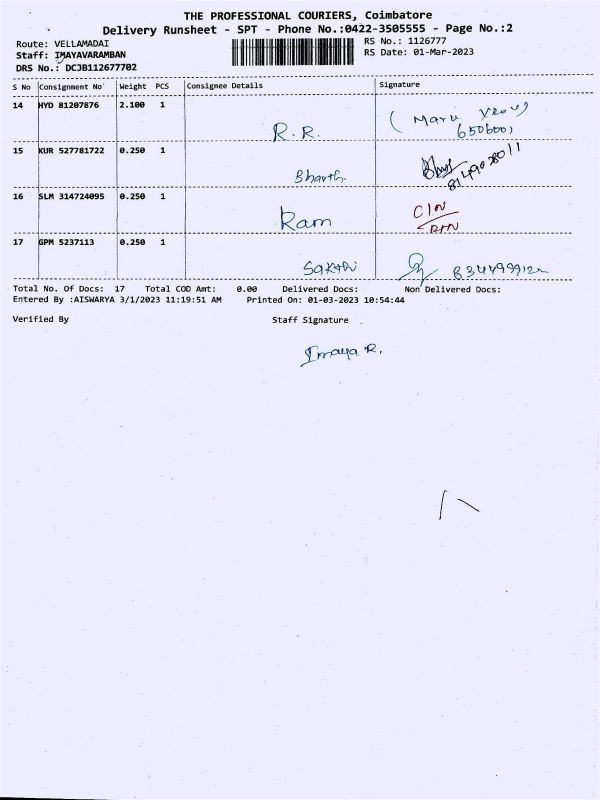 THE PROFESSIONAL COURIERS, Coimbatore
Delivery Runsheet - SPT - Phone No.:0422-3505555 - Page No.:2
Route: VELLAMADAI
RS No.: 1126777
Staff: IMAYAVARAMBAN
RS Date: 01-Mar-2023
DRS No.: DCJB112677702
S No Consignment No Weight PCS Consignee Details Signature
14 HYD 81207876 2.100 1
R.R.
650600,
15 KUR 527781722 0.250 1
Bharth.
16 SLM 314724095 0.250 1
Ram
17 GPM 5237113 0.250 1
Sakthi
Total No. Of Docs: 17 Total COD Amt: 0.00 Delivered Docs: Non Delivered Docs:
Entered By :AISWARYA 3/1/2023 11:19:51 AM Printed On: 01-03-2023 10:54:44
Verified By Staff Signature
Imaya R.